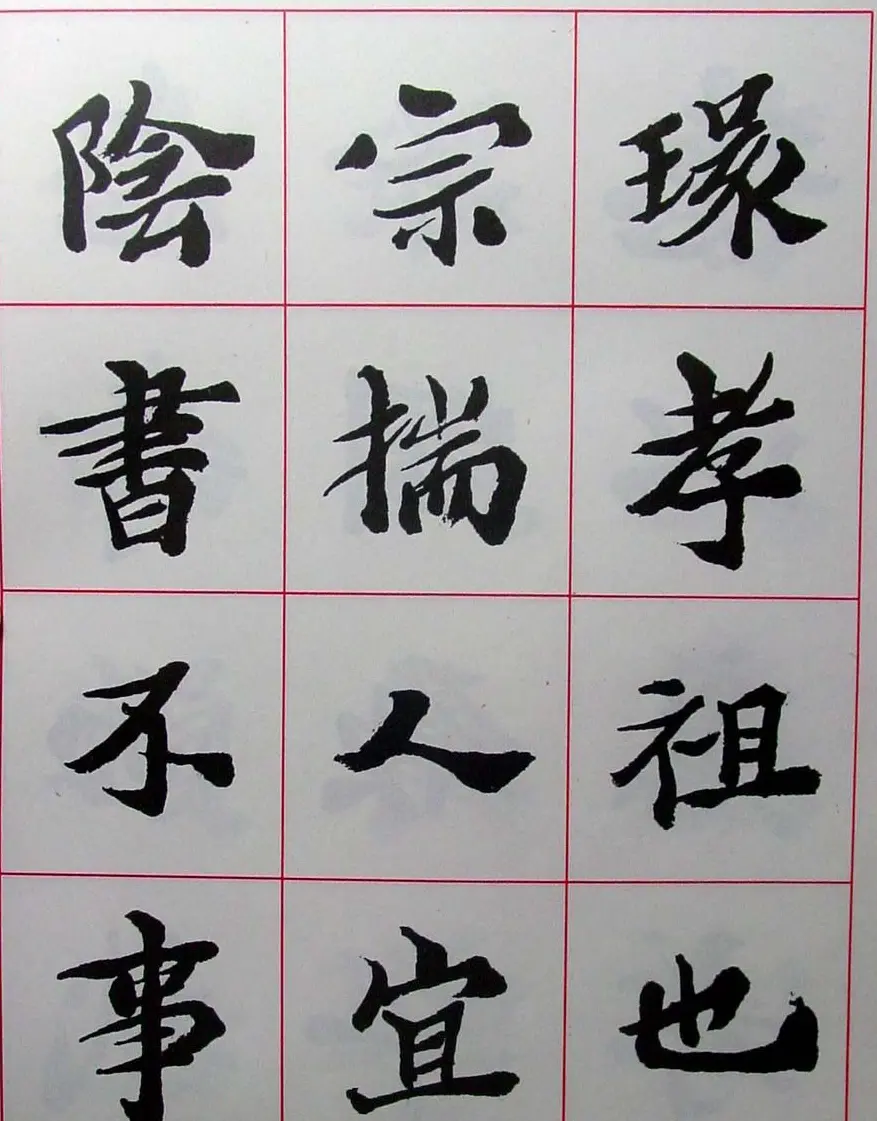 環孝祖也
宗揣人宜
陰書不事